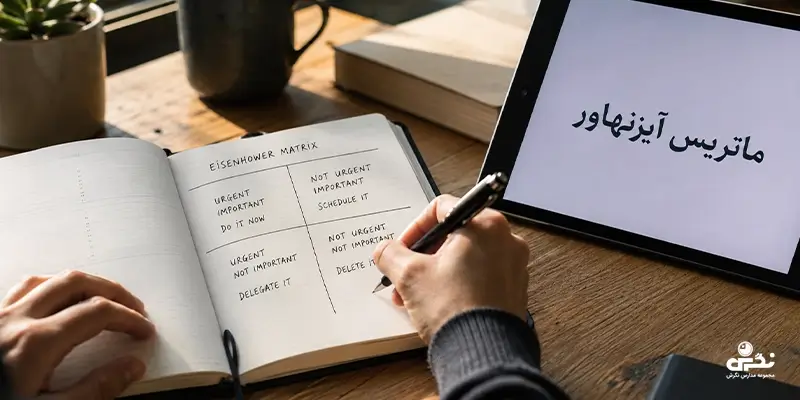 EISENHOWER MATRIX
URGENT
IMPORTANT
DO IT NOW
NOT URGENT
IMPORTANT
SCHEDULE IT
URGENT
NOT IMPORTANT
DELEGATE IT
NOT URGENT
NOT IMPORTANT
DELETE IT
ماتریس آیزنهاور
نگرش
مجموعه مدارس نگرش